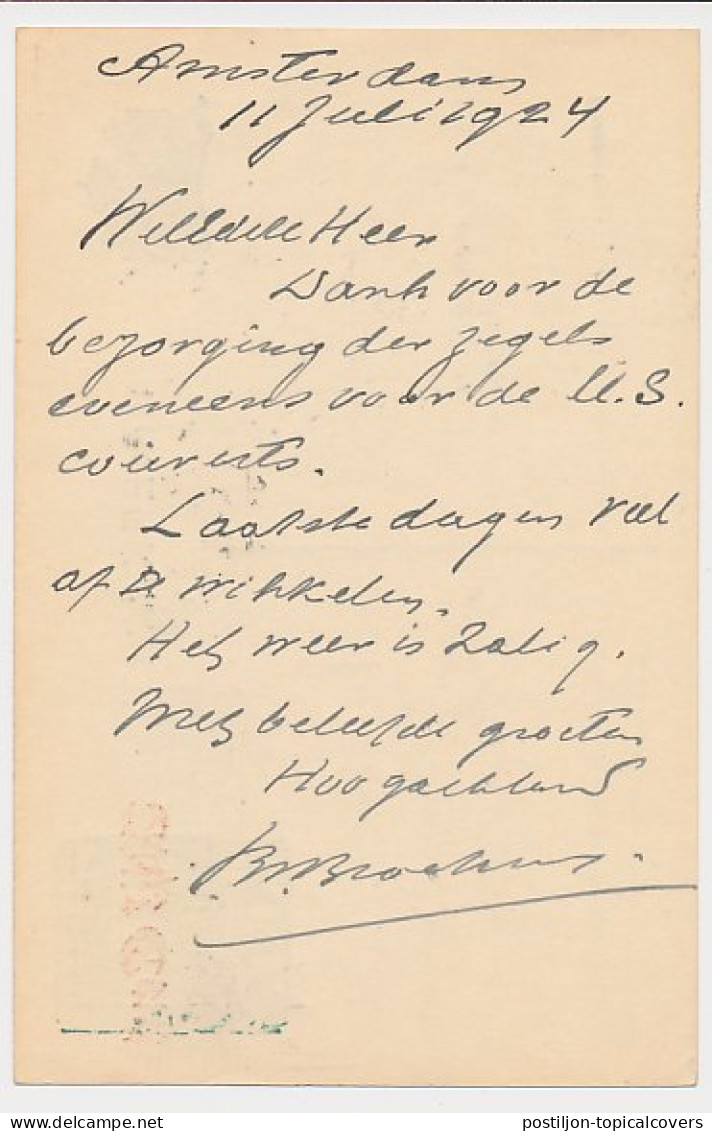 Amsterdam
11 Juli 1924
WelEdele Heer
Dank voor de
bezorging der zegels
eveneens voor de U.S.
couverts.
Laatste dagen veel
af te wikkelen.
Het weer is zalig.
Met beleefde groeten
Hoogachtend
postiljon-topicalcovers